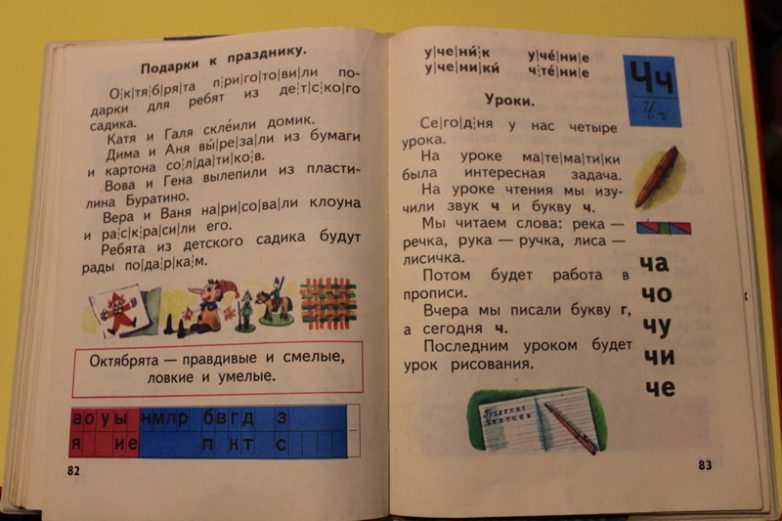 Подарки к празднику.
О¦к|тя¦б|ря|та п¦ри|го|то|ви|ли по-
дарки для ребят из де¦т|с¦ко|го
садика.
Катя и Галя скле́или домик.
Дима и Аня вы́|ре|за|ли из бумаги
и картона со|л¦да|ти|ко|в.
Вова и Гена вылепили из пласти-
лина Буратино.
Вера и Ваня на|ри|со|ва|ли клоуна
и ра|с¦к|ра|си|ли его.
Ребята из детского садика будут
рады по|да|р¦ка|м.
Октябрята — правдивые и смелые,
ловкие и умелые.
а о у ы н м л р б в г д з
я и е п к т с
82
у|че|ни́|к у|че́|ни|е
у|че|ни|ки́ ч¦те́|ни|е
Чч
Чч
Уроки.
Се|го|д¦ня у нас четыре
урока.
На уроке ма|те|ма|ти|ки
была интересная задача.
На уроке чтения мы изу-
чили звук ч и букву ч.
Мы читаем слова: река —
речка, рука — ручка, лиса —
лисичка.
Потом будет работа в
прописи.
Вчера мы писали букву г,
а сегодня ч.
Последним уроком будет
урок рисования.
ча
чо
чу
чи
че
83